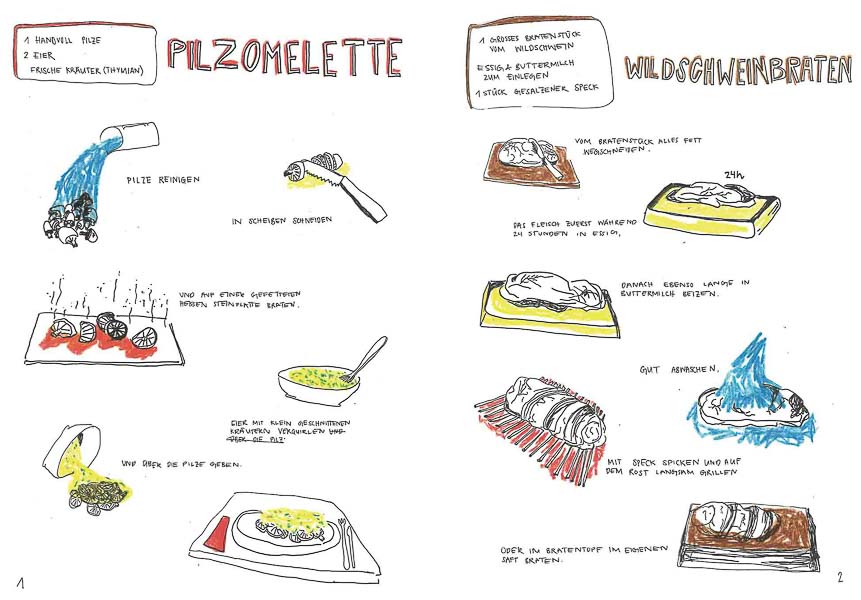 1 HANDVOLL PILZE
2 EIER
FRISCHE KRÄUTER (THYMIAN)
PILZOMELETTE
PILZE REINIGEN
IN SCHEIBEN SCHNEIDEN
UND AUF EINER GEFETTETEN
HEISSEN STEINPLATTE BRATEN.
EIER MIT KLEIN GESCHNITTENEN
KRÄUTERN VERQUIRLEN UND
ÜBER DIE PILZ
UND ÜBER DIE PILZE GEBEN.
1
1 GROSSES BRATENSTÜCK
VOM WILDSCHWEIN
ESSIG & BUTTERMILCH
ZUM EINLEGEN
1 STÜCK GESALZENER SPECK
WILDSCHWEINBRATEN
VOM BRATENSTÜCK ALLES FETT
WEGSCHNEIDEN.
24h
DAS FLEISCH ZUERST WÄHREND
24 STUNDEN IN ESSIG,
DANACH EBENSO LANGE IN
BUTTERMILCH BEIZEN.
GUT ABWASCHEN,
MIT SPECK SPICKEN UND AUF
DEM ROST LANGSAM GRILLEN
ODER IM BRATENTOPF IM EIGENEN
SAFT BRATEN.
2